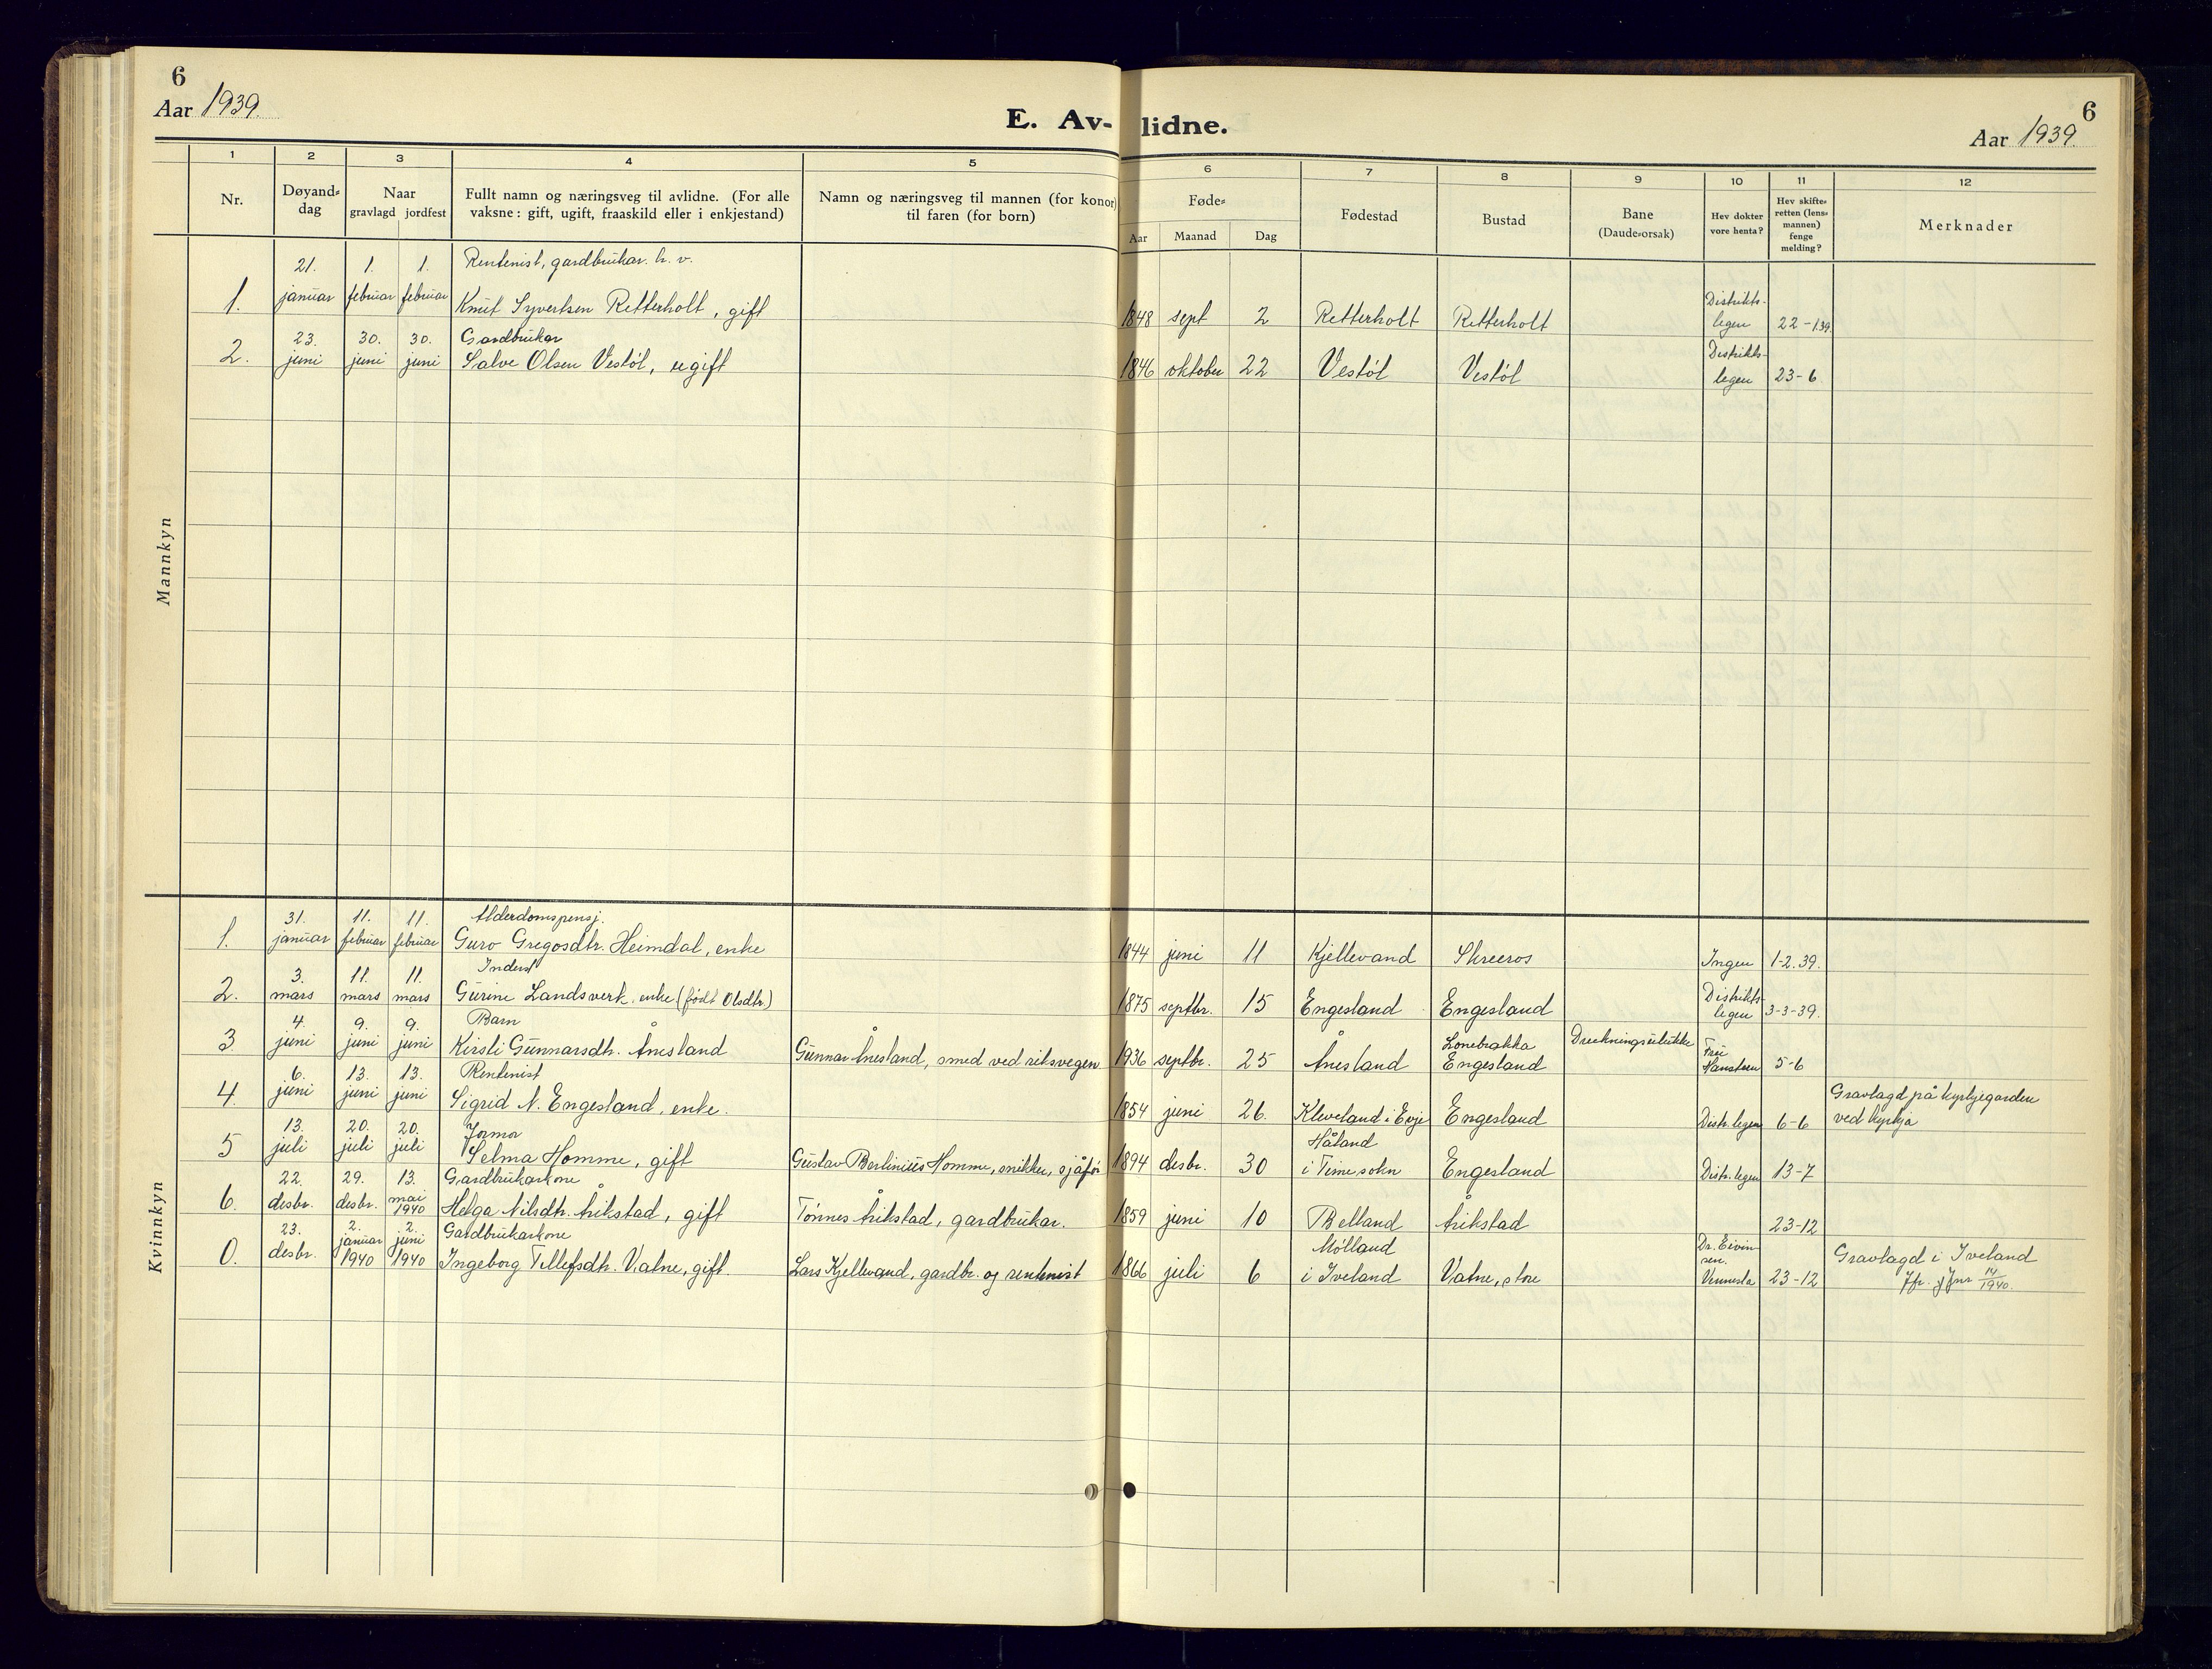 6
Aar 1939.
E. Av-lidne.
6
Aar 1939.
1 2 3 4 5 6 7 8 9 10 11 12
Nr.
Døyand-dag
Naar
gravlagd jordfest
Fullt namn og næringsveg til avlidne. (For alle
vaksne: gift, ugift, fraaskild eller i enkjestand)
Namn og næringsveg til mannen (for konor)
til faren (for born)
Føde-
Aar Maanad Dag
Fødestad
Bustad
Bane
(Daude-orsak)
Hev dokter
vore henta?
Hev skifte-
retten (lens-
mannen)
fenge
melding?
Merknader
Mannkyn
21. 1. 1. Rentenist, gardbrukar h. v.
1. januar februar februar Knut Syvertsen Retterholt, gift 1848 sept 2 Retterholt Retterholt Distrikts-legen 22-1 39
23. 30. 30. Gardbrukar
2. juni juni juni Salve Olsen Vestöl, ugift 1846 oktober 22 Vestöl Vestöl Distrikts-legen 23-6
Kvinnkyn
31. 11. 11. Alderdomspensj.
1. januar februar februar Guro Gregosdtr. Heimdal, enke 1844 juni 11 Kjellevand Skreeros Ingen 1-2.39.
3. 11. 11. Inderst
2. mars mars mars Gurine Landsverk, enke (født Olsdtr.) 1875 septbr. 15 Engesland Engesland Distrikts-legen 3-3-39.
4. 9. 9. Barn
3. juni juni juni Kirsti Gunnarsdtr. Ånesland Gunnar Ånesland, smed ved riksvegen 1936 septbr. 25 Ånesland Lonebrakka Engesland Drukningsulukke Fru Hansteen 5-6
6. 13. 13. Rentenist
4. juni juni juni Sigrid N. Engesland, enke. 1854 juni 26. Kleveland i Evje Engesland Distr.legen 6-6 Gravlagd på kyrkjegarden ved kyrkja
13. 20. 20. Jormor
5 juli juli juli Selma Homme, gift Gustav Berlinius Homme, snikker, sjåfør 1894 desbr. 30 Håland i Time sokn Engesland Distr.legen 13-7
22. 29. 13. Gardbrukarkone
6. desbr. desbr. mai 1940 Helga Nilsdtr. Årikstad, gift Tönnes Årikstad, gardbrukar. 1859 juni 10 Belland Årikstad 23-12
23. 2. 2. Gardbrukarkone
0. desbr. januar 1940 juni 1940 Ingeborg Tellefsdtr. Vatne, gift. Lars Kjellevand, gardbr. og rentenist 1866 juli 6 Mölland i Iveland Vatne, store Dr. Eivinsen. Vennesla 23-12 Gravlagd i Iveland
Jfr. Jnr 14/1940.